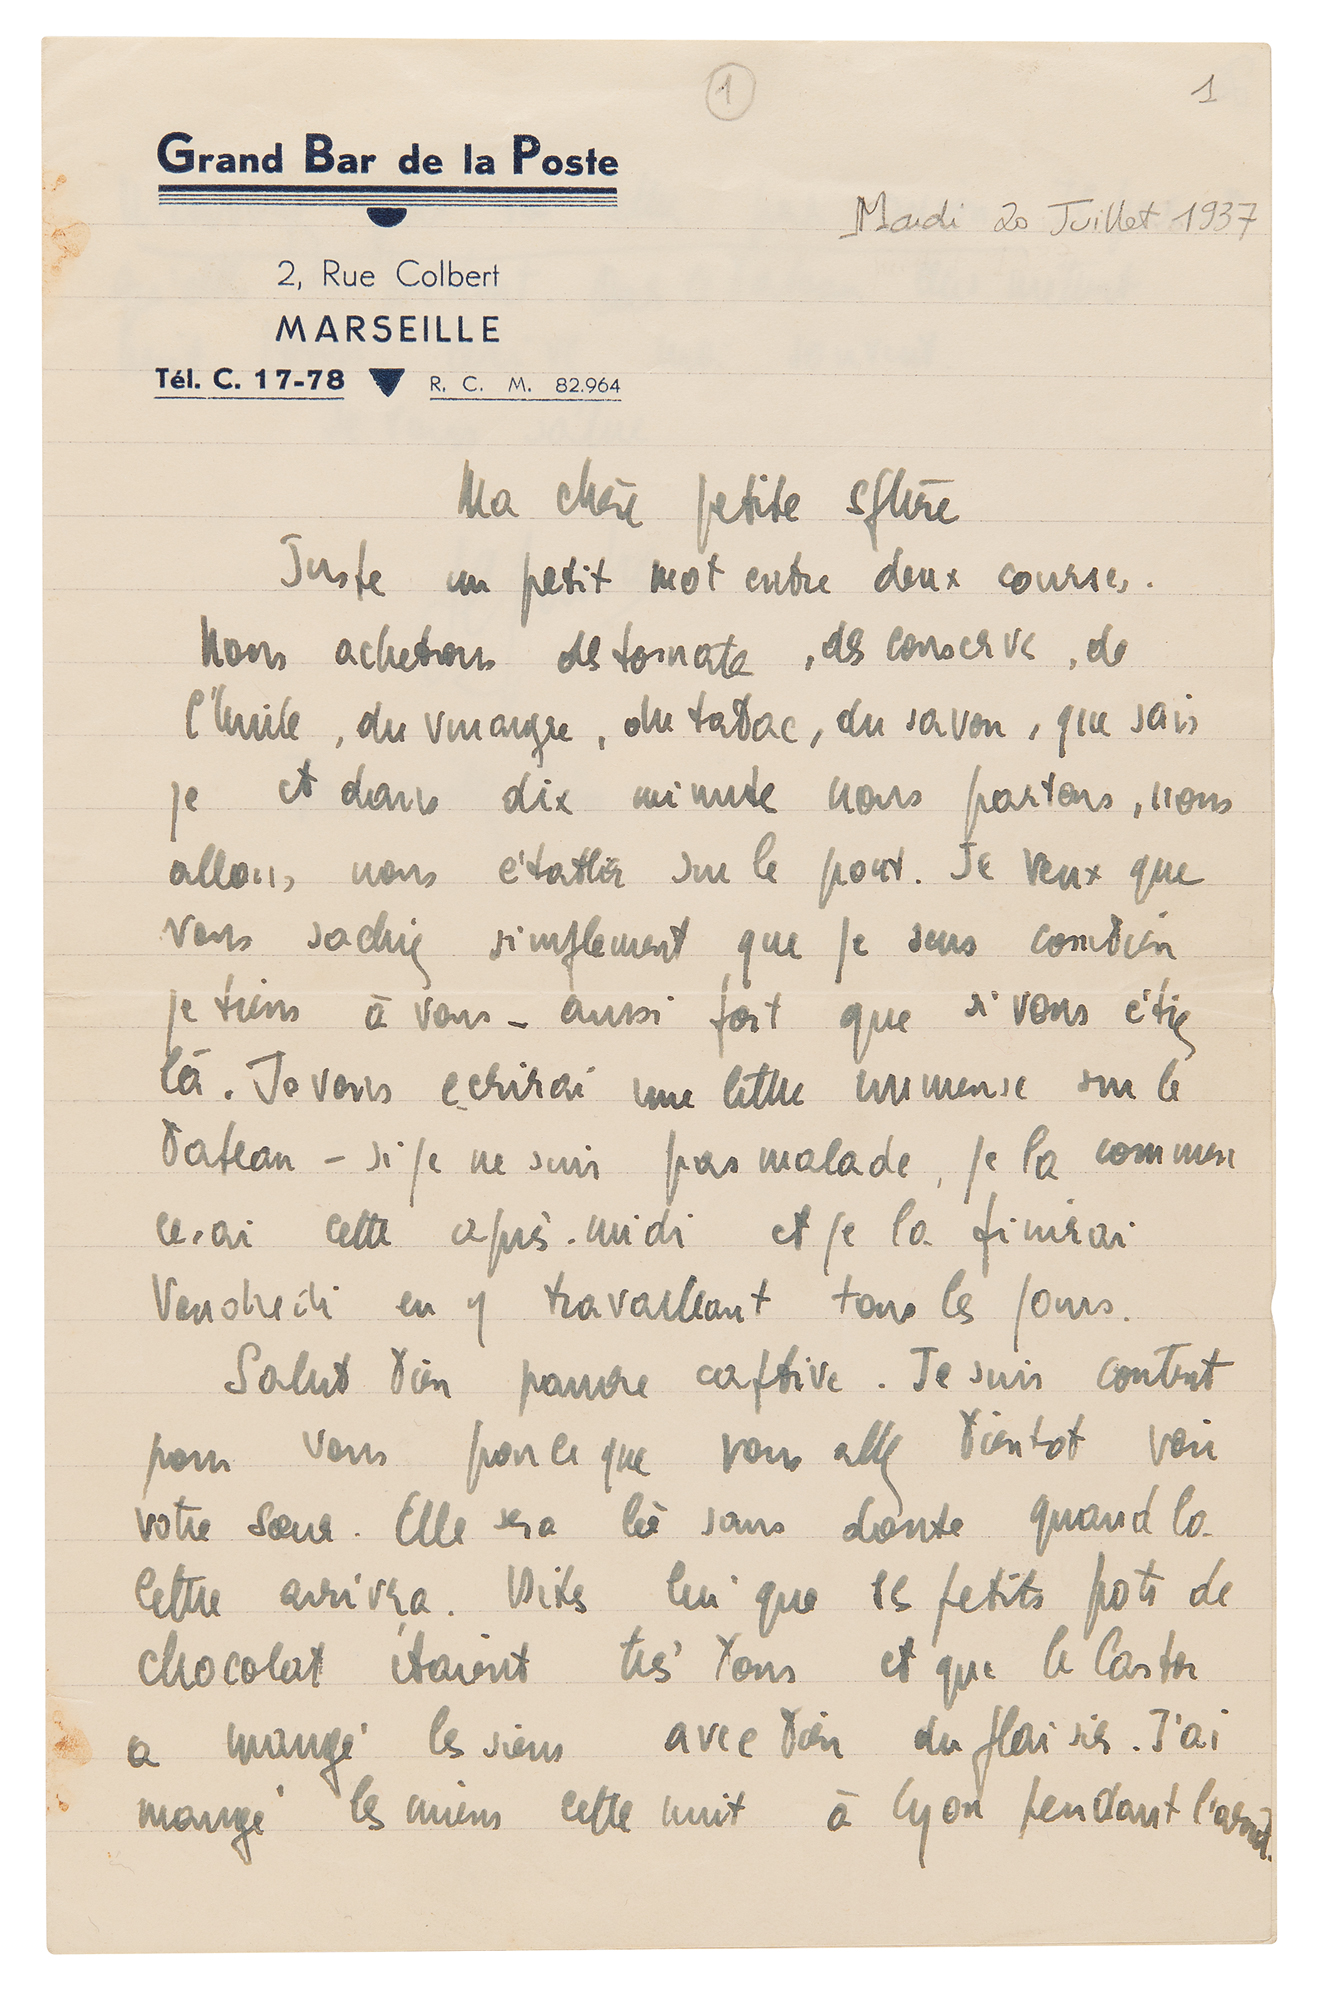 1
1
Grand Bar de la Poste
Mardi 20 Juillet 1937
2, Rue Colbert
MARSEILLE
Tél. C. 17-78 R. C. M. 82.964
Ma chère petite
Juste un petit mot entre deux courses.
Nous achetons des tomate, des conserve, de
l'huile, du vinaigre, du tabac, du savon, que sais
je et dans dix minute nous partons, nous
allons nous établir sur le pont. Je veux que
vous sachiez simplement que je sens combien
je tiens à vous - aussi fort que si vous étiez
là. Je vous ecrirai une lettre immense sur le
bateau - si je ne suis pas malade, je la commen
cerai cette après-midi et je la finirai
Vendredi en y travaillant tous les jours.
Salut bien pauvre captive. Je suis content
pour vous parce que vous allez bientot voir
votre sœur. Elle sera là sans doute quand la
lettre arrivra. Dites lui que ses petits pots de
chocolat étaient très bons et que le Castor
a mangé les siens avec bien du plaisir. J'ai
mangé les miens cette nuit à Lyon pendant l'arrêt.